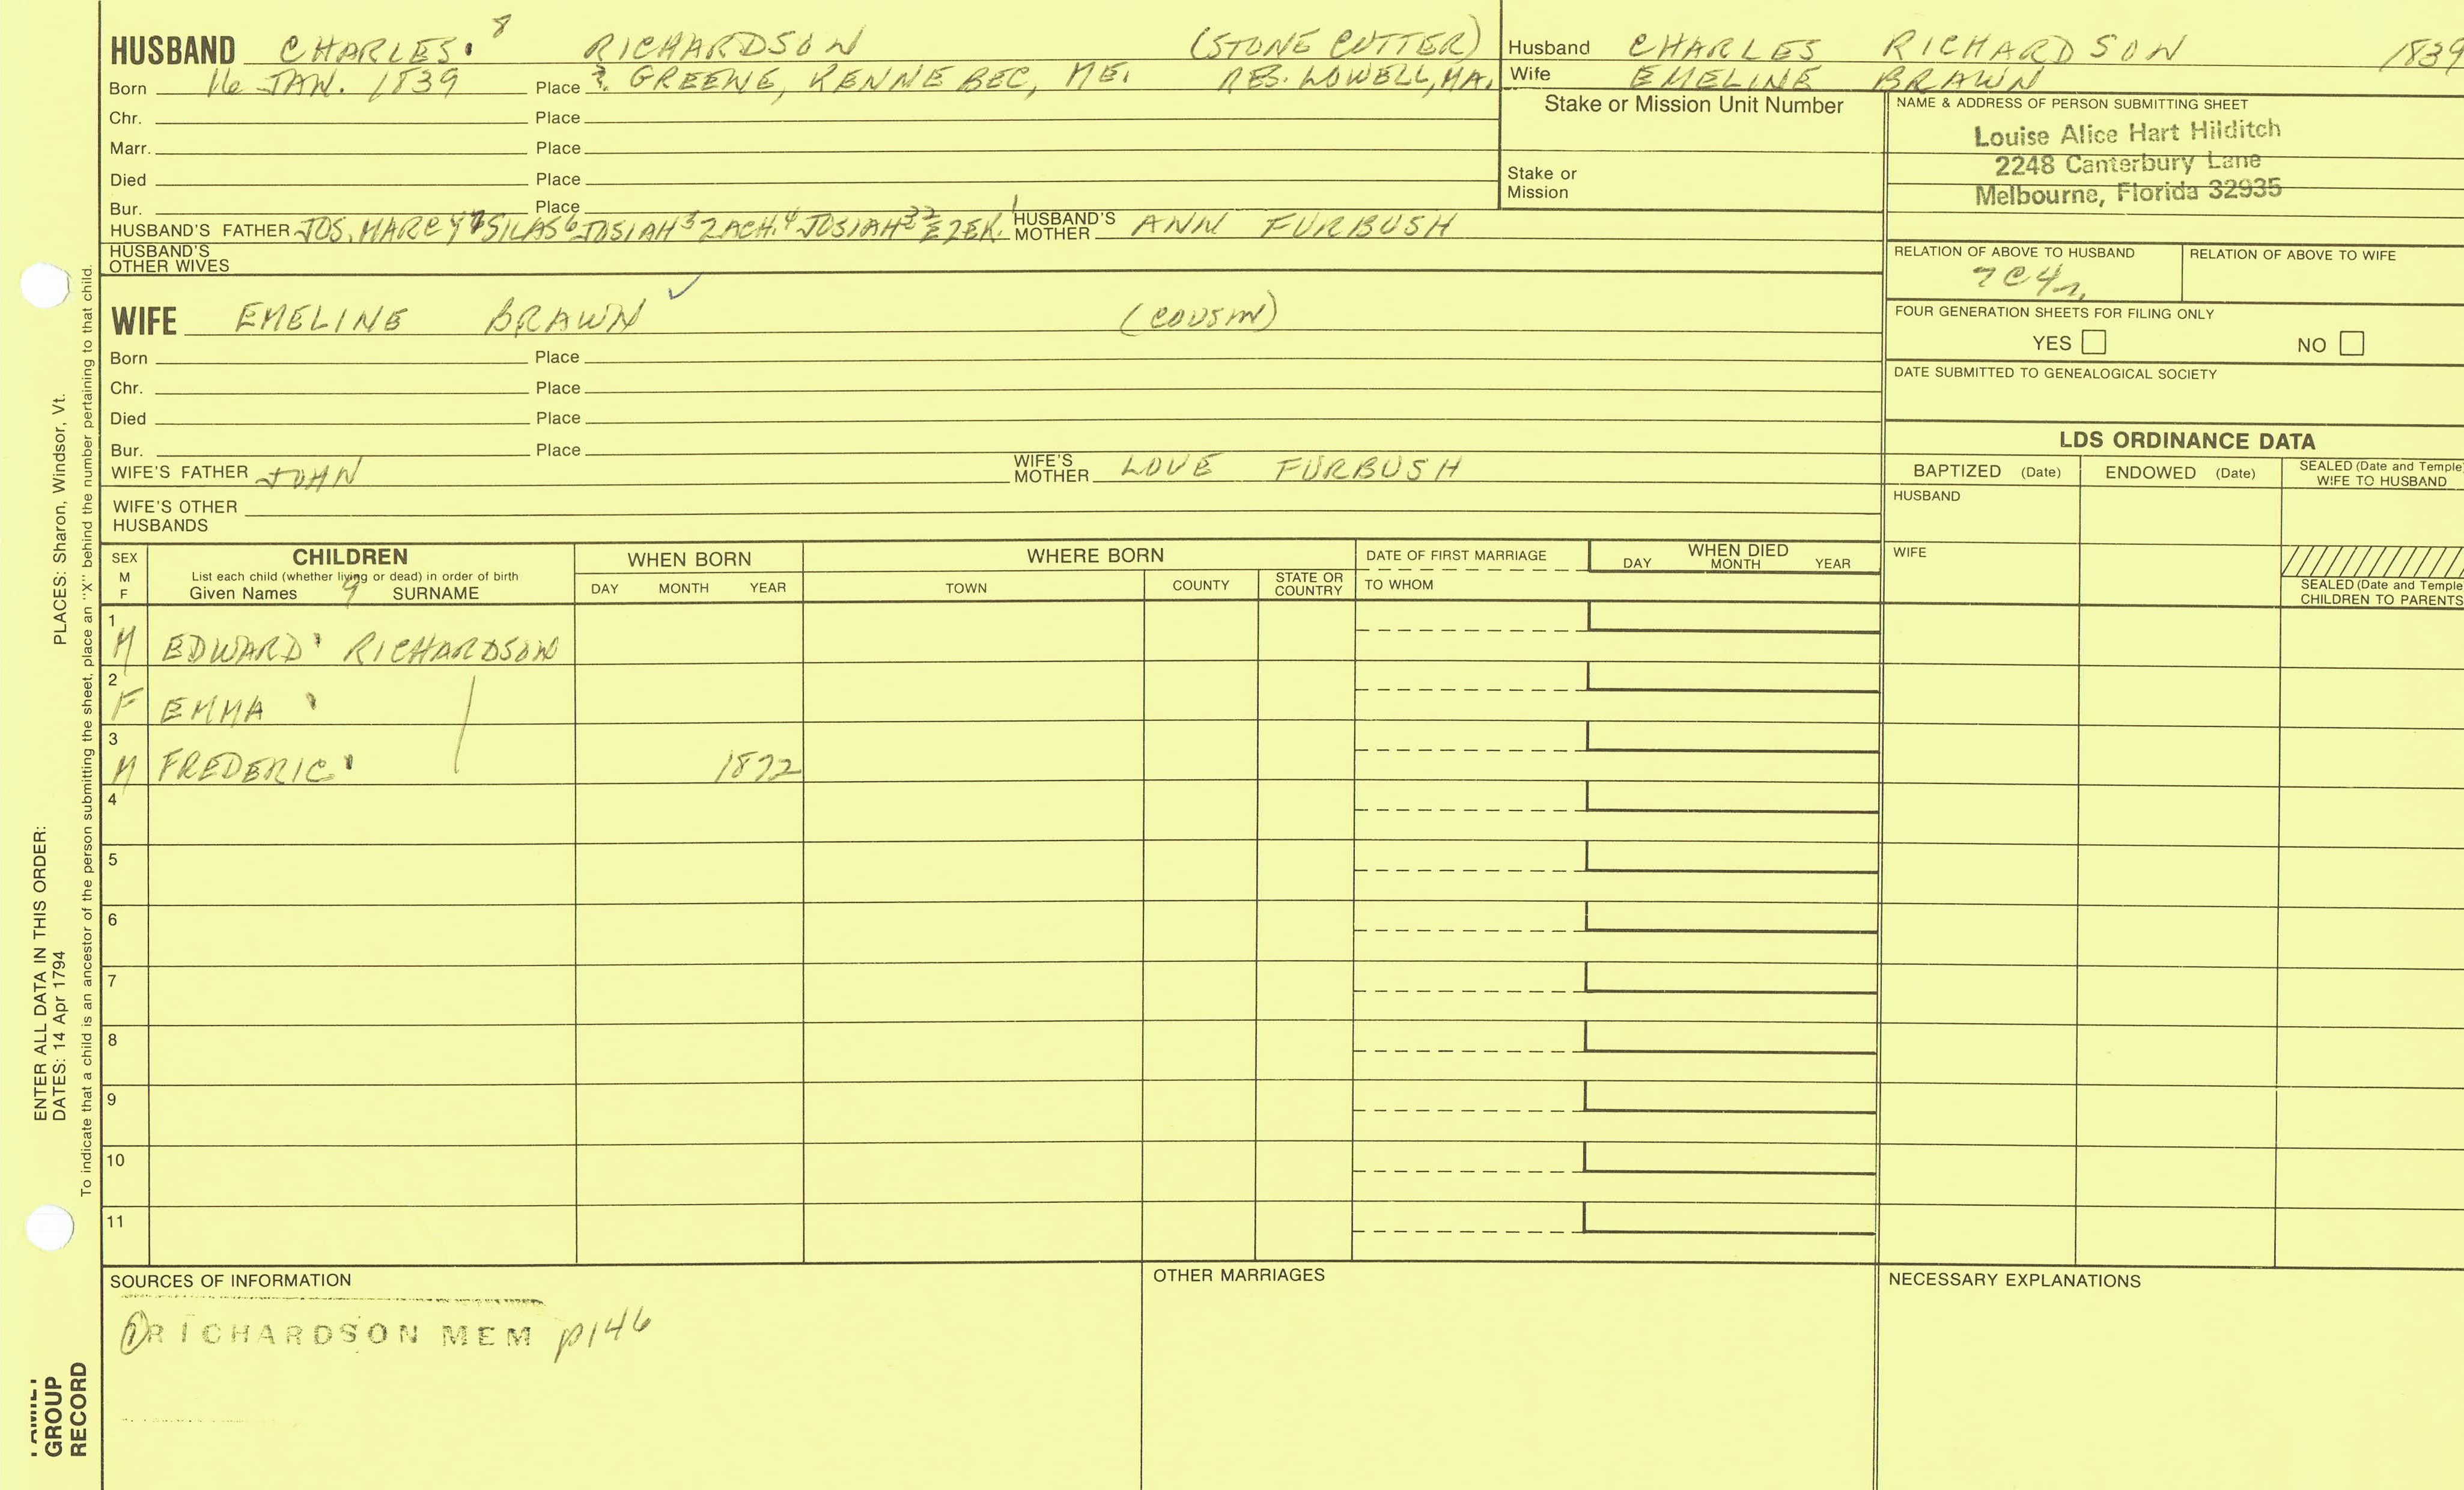 HUSBAND CHARLES 8 RICHARDSON (STONE CUTTER)
Born 16 JAN. 1839 Place ?. GREENE, KENNEBEC, ME. RES. LOWELL, MA.
Chr. Place
Marr. Place
Died Place
Bur. Place
HUSBAND'S FATHER JOS. MARCY 7 SILAS 6 JOSIAH 5 ZACH. 4 JOSIAH 3 2 EZEK. 1 HUSBAND'S MOTHER ANN FURBUSH
HUSBAND'S OTHER WIVES
WIFE EMELINE BRAWN ✓ (COUSIN)
Born Place
Chr. Place
Died Place
Bur. Place
WIFE'S FATHER JOHN WIFE'S MOTHER LOVE FURBUSH
WIFE'S OTHER HUSBANDS
Husband CHARLES RICHARDSON 1839
Wife EMELINE BRAWN
Stake or Mission Unit Number
Stake or
Mission
NAME & ADDRESS OF PERSON SUBMITTING SHEET
Louise Alice Hart Hilditch
2248 Canterbury Lane
Melbourne, Florida 32935
RELATION OF ABOVE TO HUSBAND RELATION OF ABOVE TO WIFE
7C4r
FOUR GENERATION SHEETS FOR FILING ONLY
YES NO
DATE SUBMITTED TO GENEALOGICAL SOCIETY
LDS ORDINANCE DATA
BAPTIZED (Date) ENDOWED (Date) SEALED (Date and Temple) WIFE TO HUSBAND
HUSBAND
WIFE
SEALED (Date and Temple
CHILDREN TO PARENTS
SEX
M
F
CHILDREN
List each child (whether living or dead) in order of birth
Given Names 9 SURNAME
WHEN BORN
DAY MONTH YEAR
WHERE BORN
TOWN COUNTY STATE OR COUNTRY
DATE OF FIRST MARRIAGE
TO WHOM
WHEN DIED
DAY MONTH YEAR
1 M EDWARD RICHARDSON
2 F EMMA
3 M FREDERIC 1872
4
5
6
7
8
9
10
11
SOURCES OF INFORMATION
① RICHARDSON MEM p146
OTHER MARRIAGES
NECESSARY EXPLANATIONS
ENTER ALL DATA IN THIS ORDER:
DATES: 14 Apr 1794
PLACES: Sharon, Windsor, Vt.
To indicate that a child is an ancestor of the person submitting the sheet, place an "X" behind the number pertaining to that child.
FAMILY
GROUP
RECORD